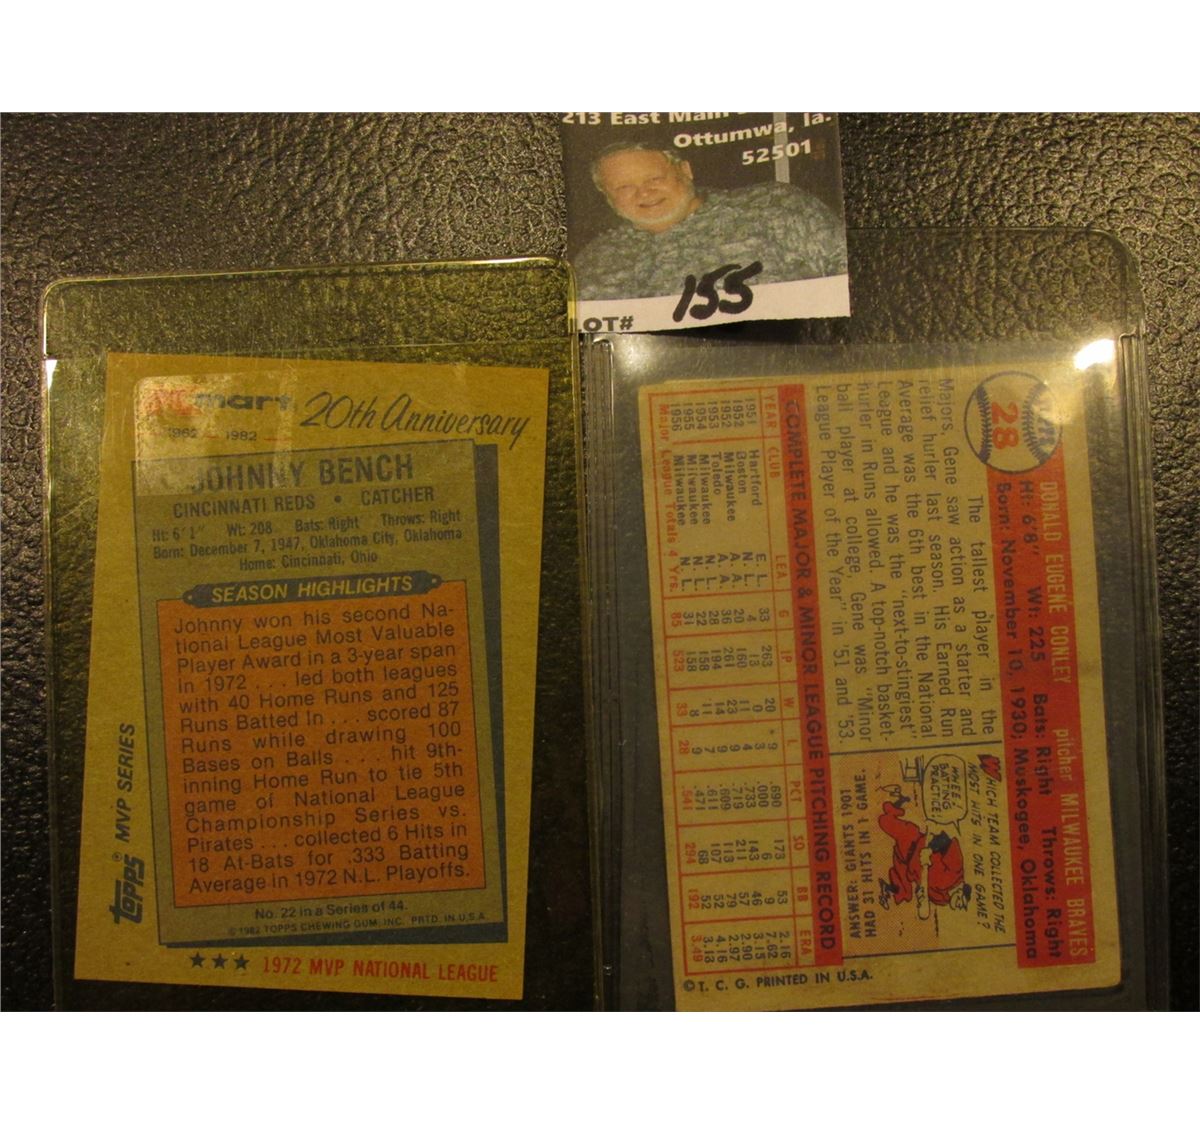 213 East Main
Ottumwa, Ia.
52501
LOT# 155
Kmart 20th Anniversary
1962 - 1982
JOHNNY BENCH
CINCINNATI REDS • CATCHER
Ht: 6'1" Wt: 208 Bats: Right Throws: Right
Born: December 7, 1947, Oklahoma City, Oklahoma
Home: Cincinnati, Ohio
SEASON HIGHLIGHTS
Johnny won his second Na-
tional League Most Valuable
Player Award in a 3-year span
in 1972 . . . led both leagues
with 40 Home Runs and 125
Runs Batted In . . . scored 87
Runs while drawing 100
Bases on Balls . . . hit 9th-
inning Home Run to tie 5th
game of National League
Championship Series vs.
Pirates . . . collected 6 Hits in
18 At-Bats for .333 Batting
Average in 1972 N.L. Playoffs.
No. 22 in a Series of 44.
© 1982 TOPPS CHEWING GUM, INC. PRTD. IN U.S.A.
★★★ 1972 MVP NATIONAL LEAGUE
topps® MVP SERIES
28
DONALD EUGENE CONLEY pitcher MILWAUKEE BRAVES
Ht: 6'8" Wt: 225 Bats: Right Throws: Right
Born: November 10, 1930; Muskogee, Oklahoma
The tallest player in the
Majors, Gene saw action as a starter and
relief hurler last season. His Earned Run
Average was the 6th best in the National
League and he was the "next-to-stingiest"
hurler in Runs allowed. A top-notch basket-
ball player at college, Gene was "Minor
League Player of the Year" in '51 and '53.
WHICH TEAM COLLECTED THE
MOST HITS IN ONE GAME?
WHEE!
BATTING
PRACTICE!
ANSWER: GIANTS 1901
HAD 31 HITS IN 1 GAME.
COMPLETE MAJOR & MINOR LEAGUE PITCHING RECORD
YEAR CLUB LEA. G IP W L PCT SO BB ERA
1951 Hartford E. L. 33 263 20 * 9 .690 173 53 2.16
1952 Boston N. L. 4 13 0 3 .000 6 9 7.62
1952 Milwaukee A. A. 20 160 11 4 .733 143 46 3.15
1953 Toledo A. A. 36 261 23 9 .719 211 79 2.90
1954 Milwaukee N. L. 28 194 14 9 .609 113 57 2.97
1955 Milwaukee N. L. 22 158 11 7 .611 107 52 4.16
1956 Milwaukee N. L. 31 158 8 9 .471 68 52 3.13
Major League Totals 4 Yrs. 85 523 33 28 .541 294 192 3.49
© T. C. G. PRINTED IN U.S.A.